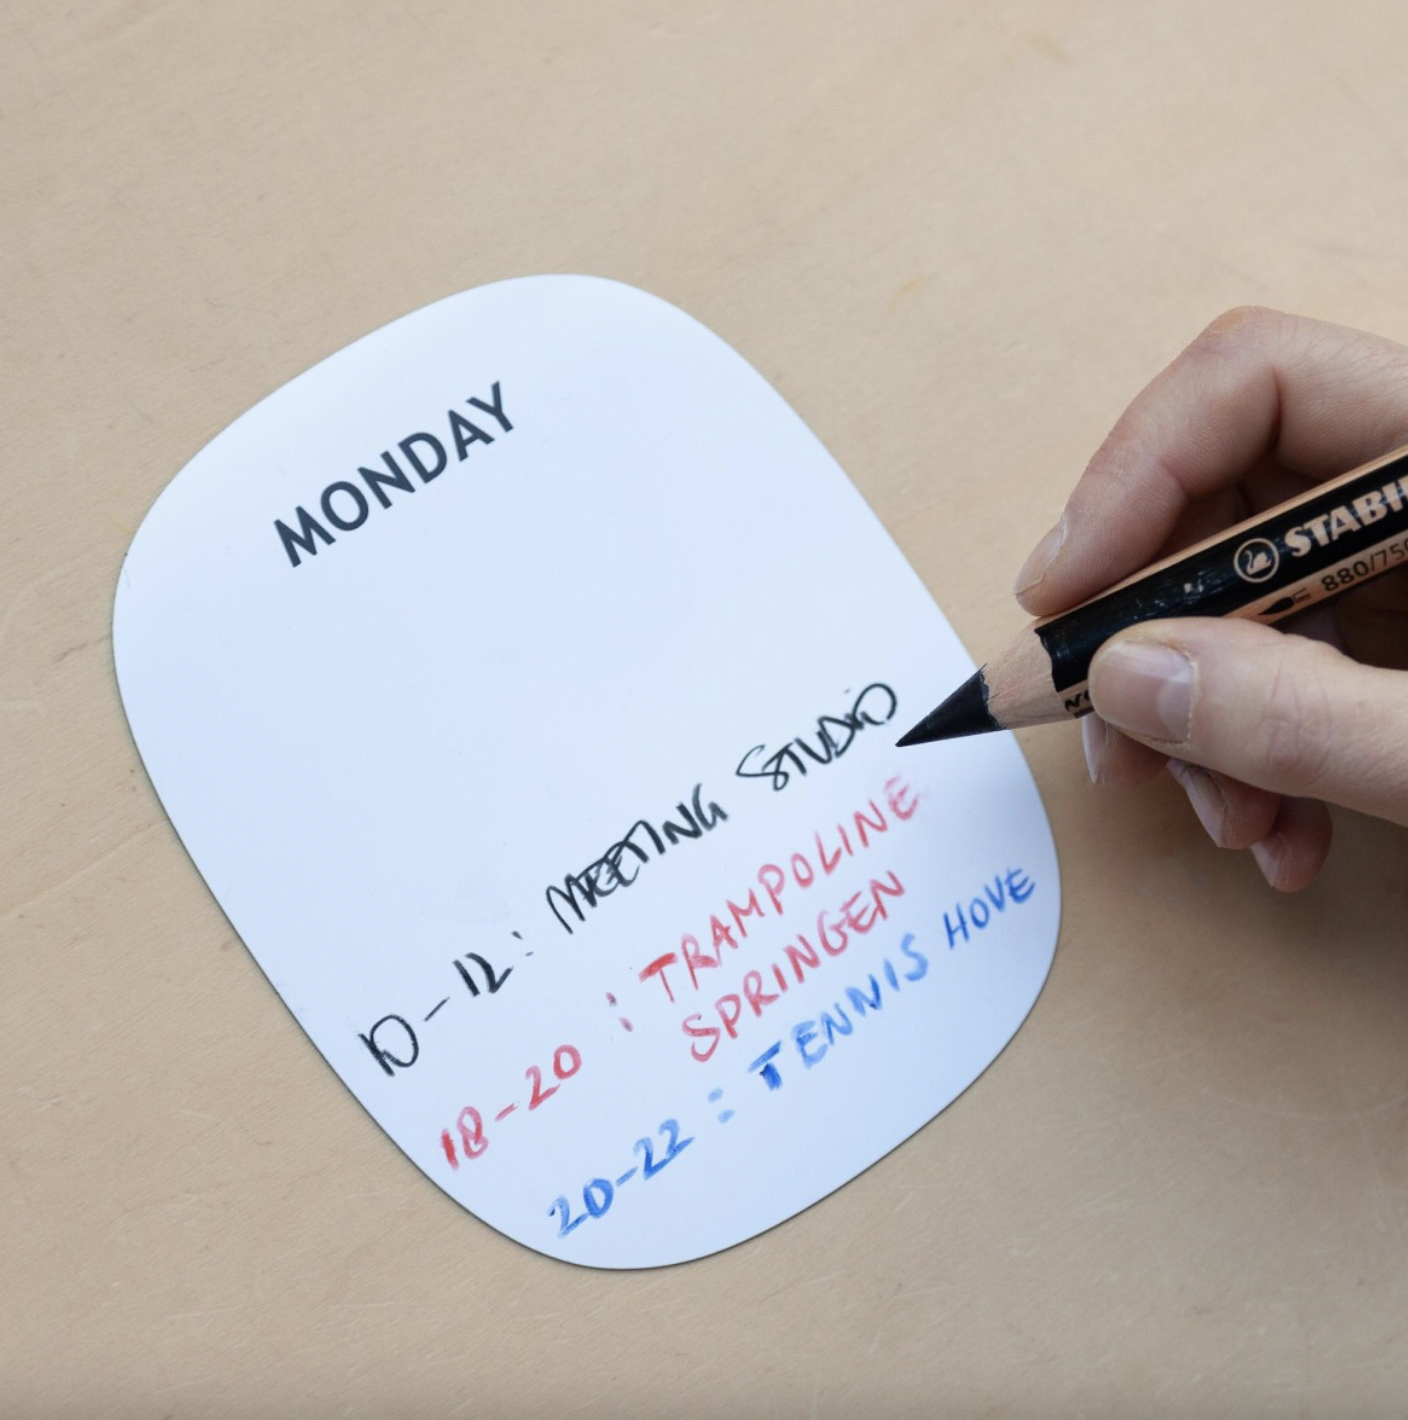 MONDAY
10-12: MEETING STUDIO
18-20 : TRAMPOLINE
SPRINGEN
20-22 : TENNIS HOVE
STABI
880/750